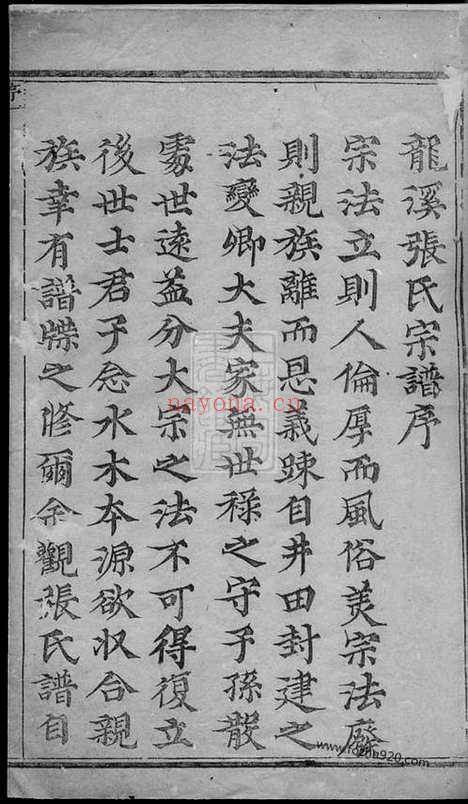 龍溪張氏宗譜序
宗法立則人倫厚而風俗美宗法廢
則親族離而恩義踈自井田封建之
法變卿大夫家無世祿之守子孫散
處世遠益分大宗之法不可得復立
後世士君子念水木本源欲收合親
族幸有譜牒之修爾余觀張氏譜自
序
nayona.cn
www.fozhu920.com